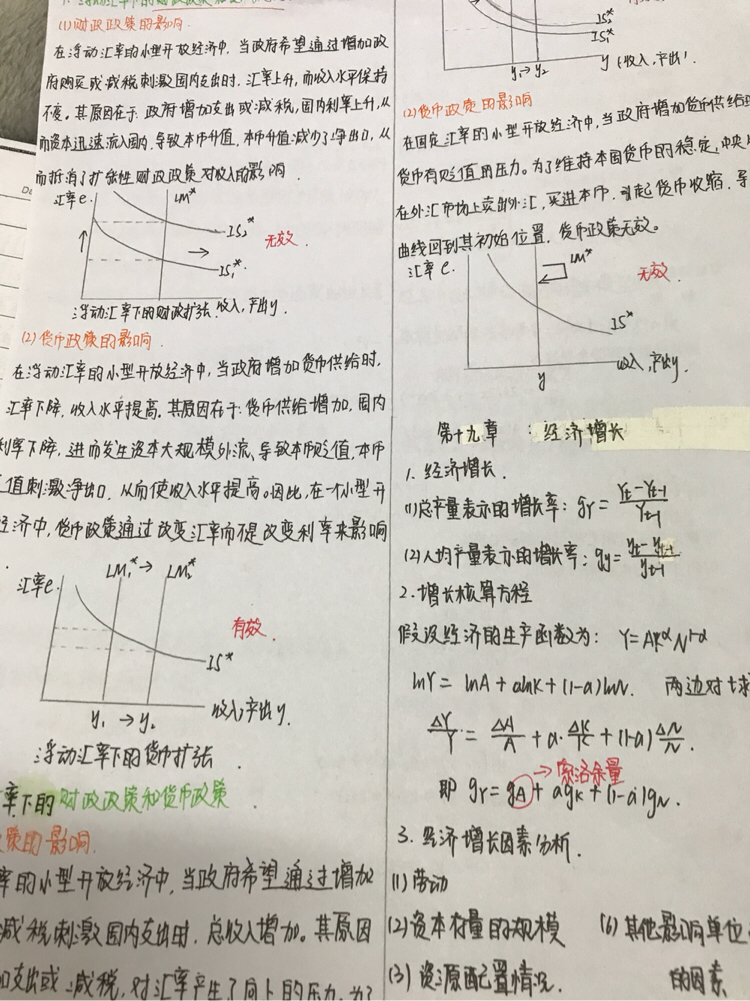 (1)财政政策的影响.
在浮动汇率的小型开放经济中,当政府希望通过增加政
府购买或减税刺激国内支出时,汇率上升,而收入水平保持
不变。其原因在于:政府增加支出或减税,国内利率上升,从
而资本迅速流入国内,导致本币升值,本币升值减少了净出口,从
而抵消了扩张性财政政策对收入的影响.
汇率e.
LM*
IS₂*
无效.
IS₁*.
浮动汇率下的财政扩张.
收入,产出y.
(2)货币政策的影响.
在浮动汇率的小型开放经济中,当政府增加货币供给时,
汇率下降,收入水平提高.其原因在于:货币供给增加,国内
利率下降,进而发生资本大规模外流、导致本币贬值,本币
值刺激净出口,从而使收入水平提高。因此,在一个小型开
经济中,货币政策通过改变汇率而不是改变利率来影响
LM₁* → LM₂*
汇率e.
有效.
IS*
收入,产出y.
y₁ → y₂
浮动汇率下的货币扩张.
率下的财政政策和货币政策.
策的影响.
率的小型开放经济中,当政府希望通过增加
减税刺激国内支出时,总收入增加。其原因
加支出或减税,对汇率产生了向上的压力.为了
IS₂*
IS₁*
y₁→y₂
y(收入,产出).
(2)货币政策的影响
在固定汇率的小型开放经济中,当政府增加货币供给
货币有贬值的压力。为了维持本国货币的稳定,中央
在外汇市场上卖出外汇,买进本币,引起货币收缩,导
曲线回到其初始位置,货币政策无效。
汇率e.
LM*
无效.
IS*
收入,产出y.
y
第十九章 :经济增长
1.经济增长.
(1)总产量表示的增长率:gY = (Yt-Yt-1)/Yt-1
(2)人均产量表示的增长率:gy = (yt-yt-1)/yt-1
2.增长核算方程
假设经济的生产函数为: Y=AKᵅN¹⁻ᵅ
lnY = lnA + alnK + (1-a)lnN. 两边对t求
ΔY/Y = ΔA/A + a·ΔK/K + (1-a)ΔN/N.
→索洛余量
即 gY = gA + agK + (1-a)gN.
3.经济增长因素分析.
(1)劳动
(2)资本存量的规模 (6)其他影响单位
(3)资源配置情况. 的因素